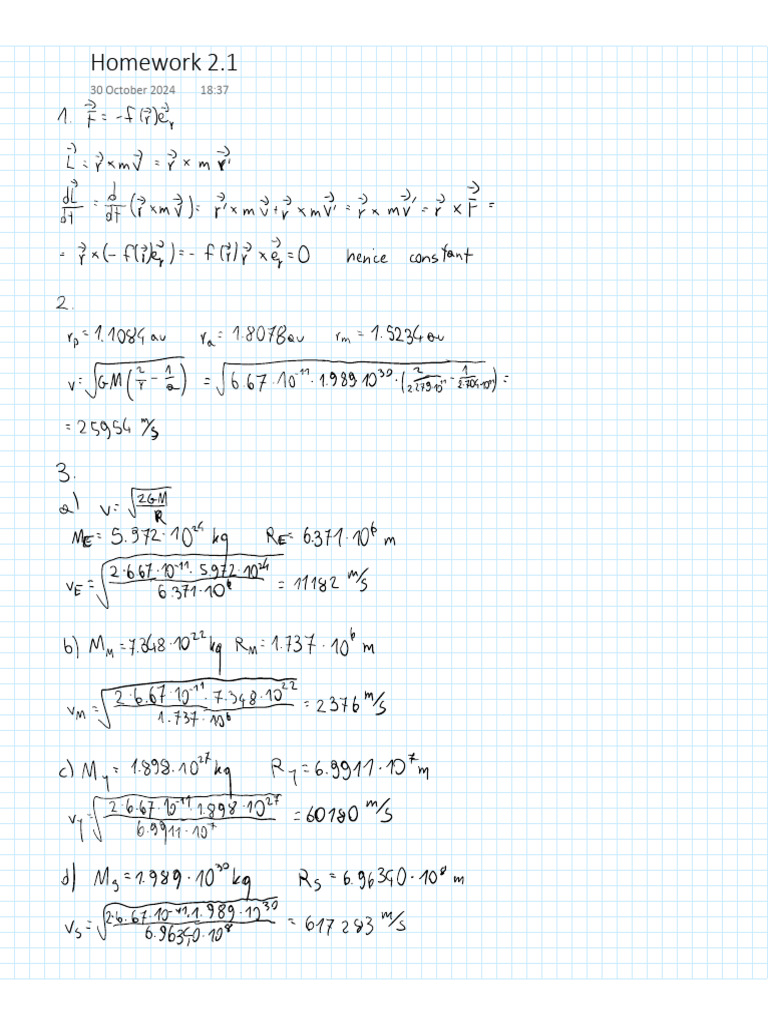 Homework 2.1
30 October 2024 18:37
1. F⃗ = -f(r⃗)e⃗ᵣ
L⃗ = r⃗ × m v⃗ = r⃗ × m r⃗'
dL⃗/dt = d/dt (r⃗ × m v⃗) = r⃗' × m v⃗ + r⃗ × m v⃗' = r⃗ × m v⃗' = r⃗ × F⃗ =
= r⃗ × (-f(r⃗)e⃗ᵣ) = - f(r⃗) r⃗ × e⃗ᵣ = 0 hence constant
2.
r_p = 1.1084 au r_a = 1.8078 au r_m = 1.5234 au
v = √(GM(2/r - 1/a)) = √(6.67·10⁻¹¹ · 1.989·10³⁰ · (2/2.279·10¹¹ - 1/2.704·10¹¹)) =
= 25954 m/s
3.
a) v = √(2GM/R)
M_E = 5.972·10²⁴ kg R_E = 6.371·10⁶ m
v_E = √(2·6.67·10⁻¹¹·5.972·10²⁴/6.371·10⁶) = 11182 m/s
b) M_M = 7.348·10²² kg R_M = 1.737·10⁶ m
v_M = √(2·6.67·10⁻¹¹·7.348·10²²/1.737·10⁶) = 2376 m/s
c) M_J = 1.898·10²⁷ kg R_J = 6.9911·10⁷ m
v_J = √(2·6.67·10⁻¹¹·1.898·10²⁷/6.9911·10⁷) = 60180 m/s
d) M_S = 1.989·10³⁰ kg R_S = 6.96340·10⁸ m
v_S = √(2·6.67·10⁻¹¹·1.989·10³⁰/6.96340·10⁸) = 617283 m/s